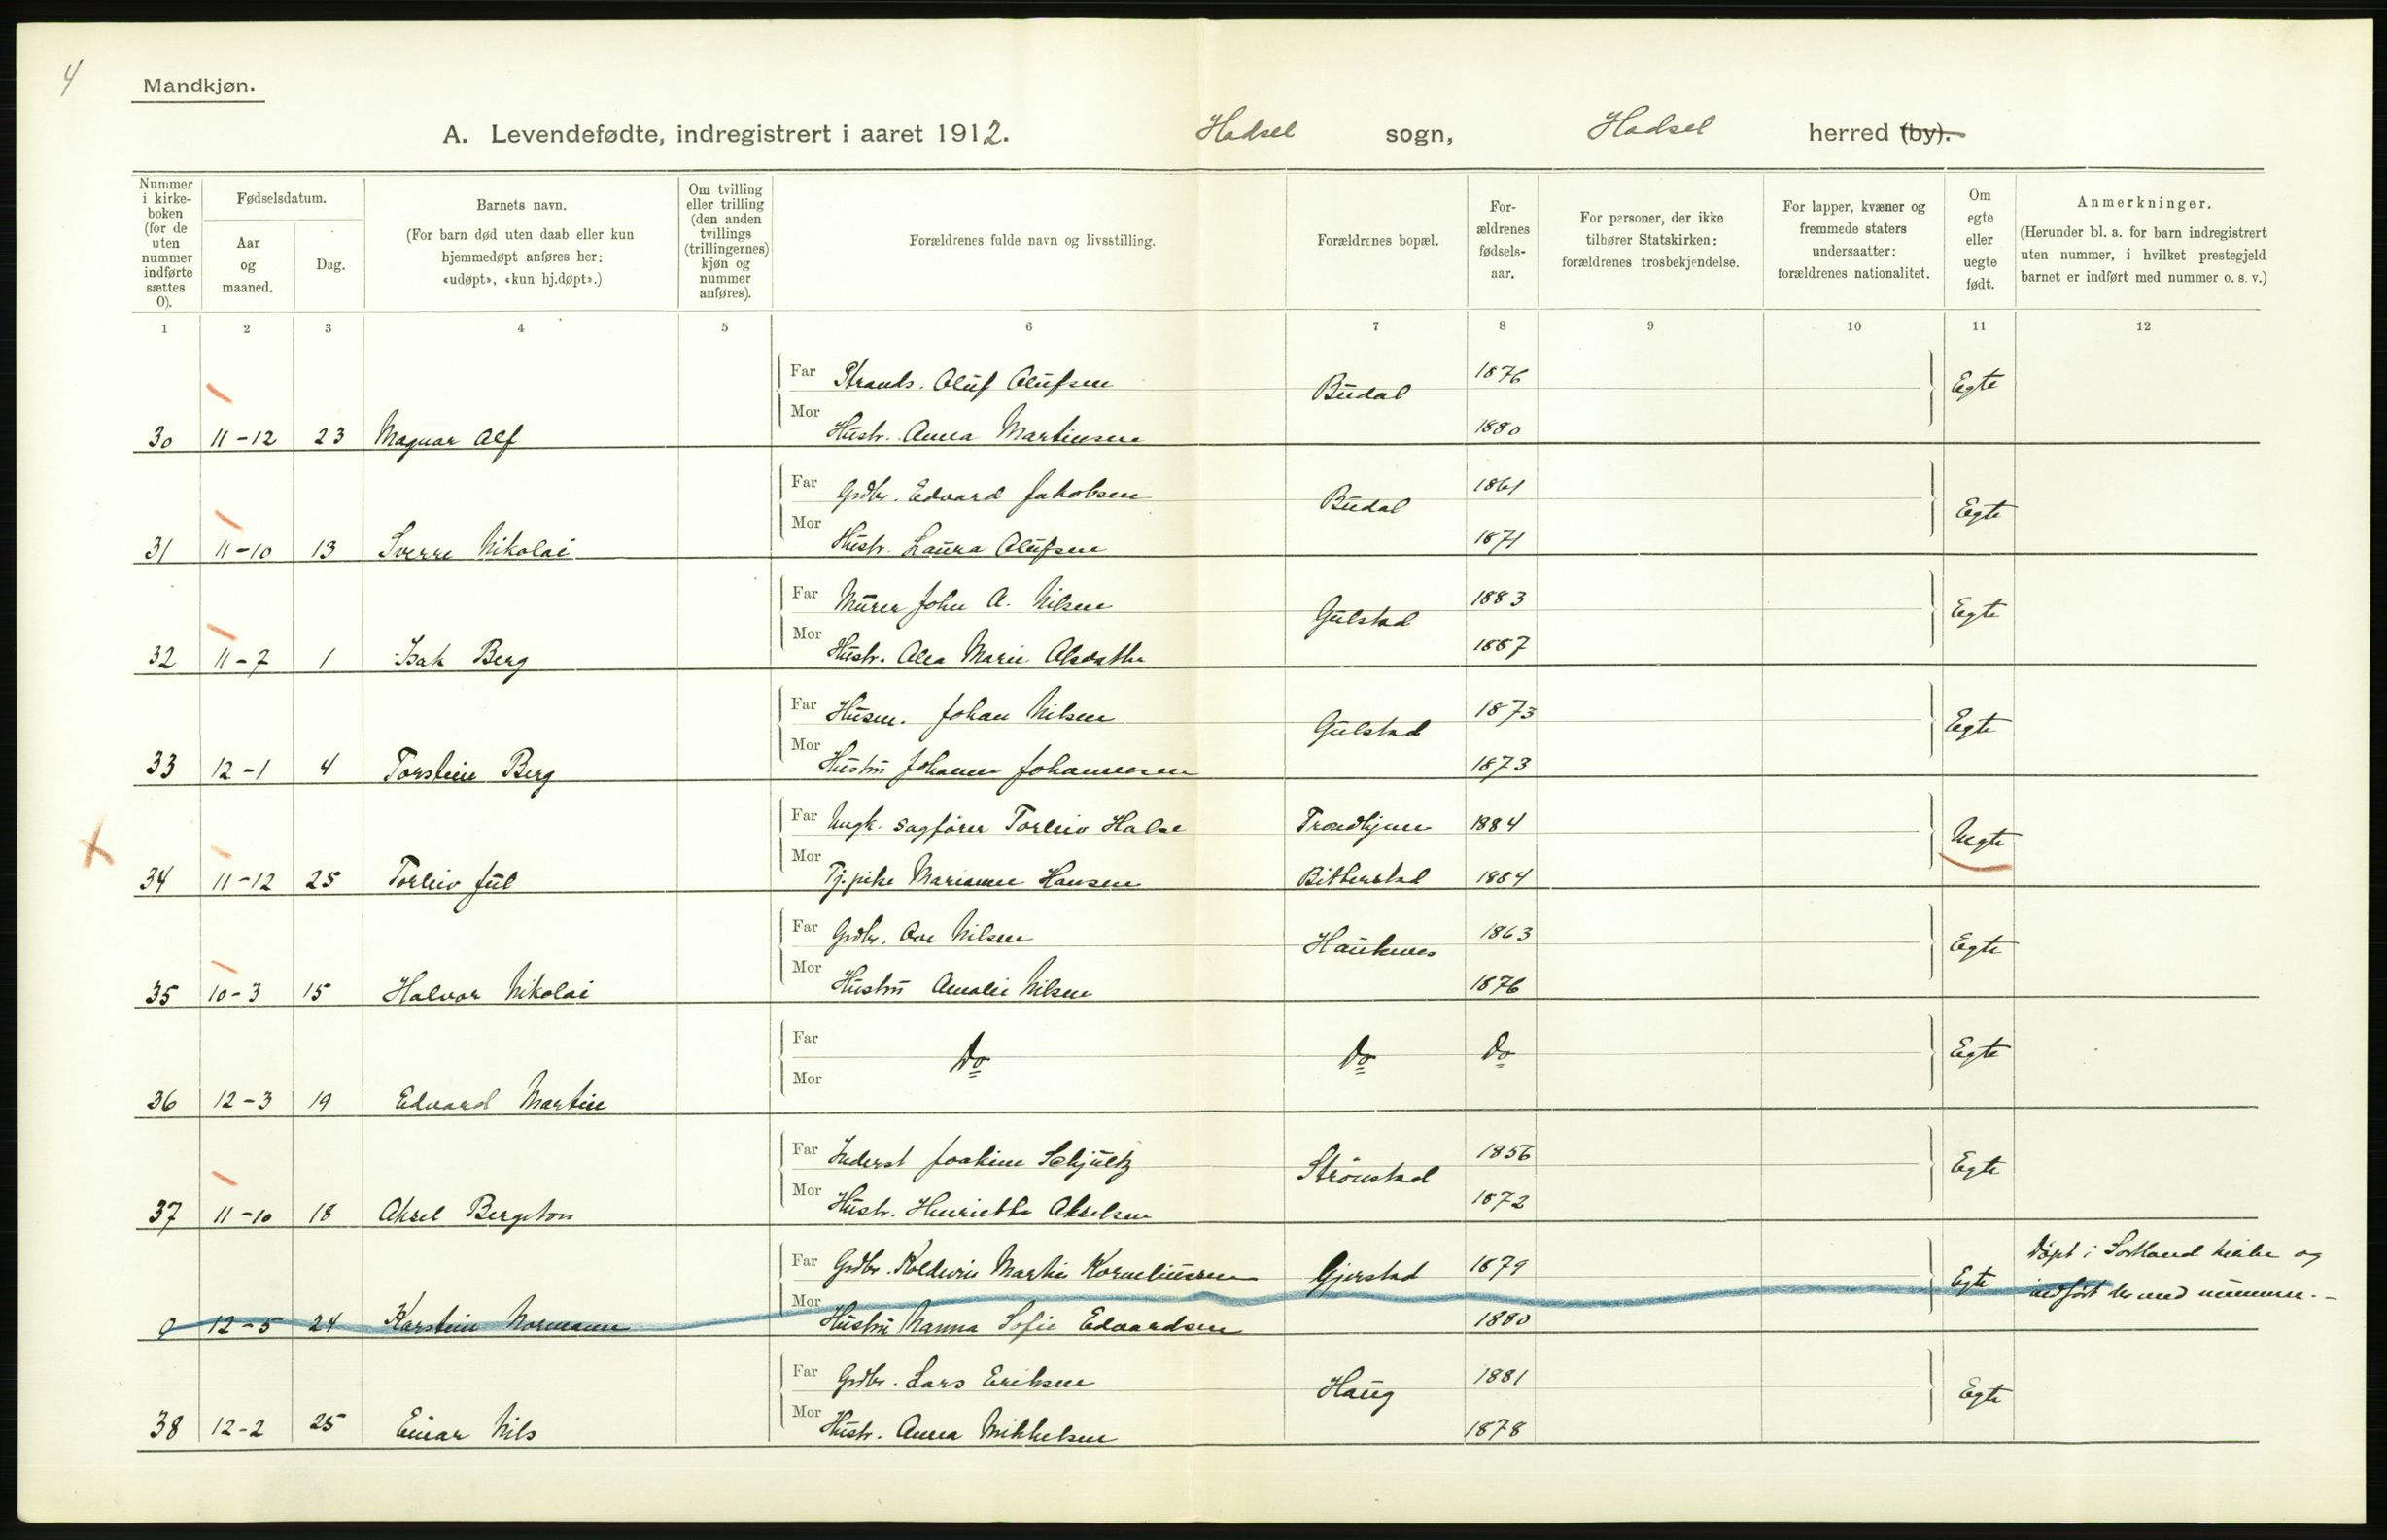 4
Mandkjøn.
A. Levendefødte, indregistrert i aaret 1912. Hadsel sogn, Hadsel herred (by).
Nummer i kirke-boken (for de uten nummer indførte sættes 0).
Fødselsdatum.
Aar og maaned.
Dag.
Barnets navn.
(For barn død uten daab eller kun hjemmedøpt anføres her: «udøpt», «kun hj.døpt».)
Om tvilling eller trilling (den anden tvillings (trillingernes) kjøn og nummer anføres).
Forældrenes fulde navn og livsstilling.
Forældrenes bopæl.
For-ældrenes fødsels-aar.
For personer, der ikke tilhører Statskirken: forældrenes trosbekjendelse.
For lapper, kvæner og fremmede staters undersaatter: forældrenes nationalitet.
Om egte eller uegte født.
Anmerkninger.
(Herunder bl. a. for barn indregistrert uten nummer, i hvilket prestegjeld barnet er indført med nummer o. s. v.)
1 2 3 4 5 6 7 8 9 10 11 12
Far Strands. Oluf Olufsen Budal 1876 Egte
30 11-12 23 Magnar Alf Mor Hustr. Anna Martinsen 1880
Far Grdbr. Edvard Jakobsen Budal 1861 Egte
31 11-10 13 Sverre Nikolai Mor Hustr. Laura Olufsen 1871
Far Murer John A. Nilsen Gulstad 1883 Egte
32 11-7 1 Isak Berg Mor Hustr. Alea Marie 1887
Far Husm. Johan Nilsen Gulstad 1873 Egte
33 12-1 4 Torstein Berg Mor Hustru Johanna Johannesen 1873
Far Ungk. sagfører Torleiv Halse Trondhjem 1884 Uegte
34 11-12 25 Torleiv Jul Mor Tj.pike Marianne Hansen Bitterstad 1884
Far Grdbr. Ove Nilsen Hauknes 1863 Egte
35 10-3 15 Halvor Nikolai Mor Hustru Amalie Nilsen 1876
Far Do Do Do Egte
36 12-3 19 Edvard Martin Mor
Far Inderst Joakim Schjultz Strønstad 1856 Egte
37 11-10 18 Aksel Bergeton Mor Hustr. Henriette Akselsen 1872
Far Grdbr. Koldevin Martin Korneliussen Gjerstad 1879 Egte Døpt i Sortland kirke og
0 12-5 24 Karstein Normann Mor Hustru Nanna Sofie Edvardsen 1880 indført der med nummer. -
Far Grdbr. Lars Eriksen Haug 1881 Egte
38 12-2 25 Einar Nils Mor Hustr. Anna Mikkelsen 1878